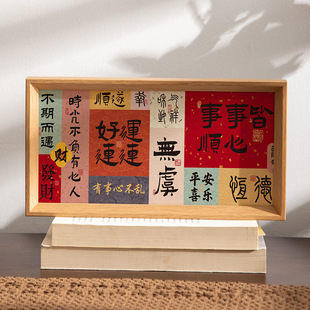 不期而遇
發財
時光不負有心人
财
順遂
好運連連
有事心不乱
無虞
事事順心
皆
平安喜乐
恆德